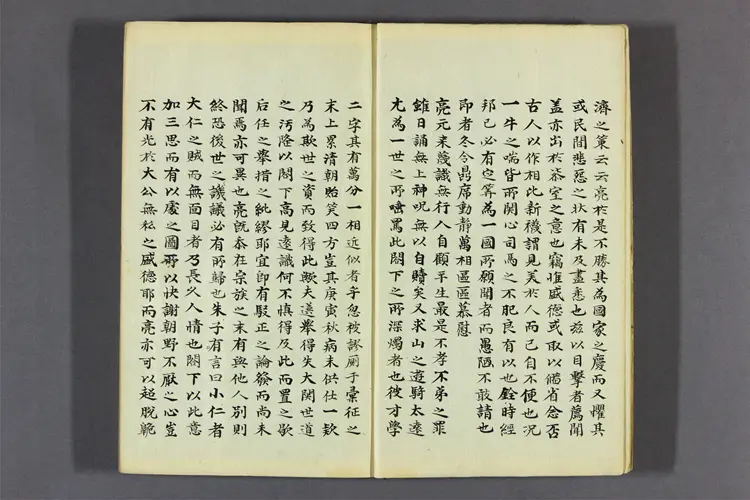 濟之策云云亮於是不勝其爲國家之慶而又懼其
或民間悲慼之狀有未及盡悉也玆以目擊者薦聞
盖亦出於茶室之意也竊惟盛德或取以備省念否
古人以作相比新襪謂見美於人而己自不便也况
一牛之喘皆所關心司馬之不肥良有以也銓時經
邦已必有定筭爲一國所願聞者而愚陋不敢請也
即者冬令鼎席動靜萬相區區慕慰
亮元來蔑識無行人自顧平生最是不孝不弟之罪
雖日誦無上神呪無以自贖矣又求山之遊騎太遠
尤爲一世之所嗤罵此閤下之所深燭者也彼才學
二字其有萬分一相近似者乎忽被謬剡于彙征之
末上累清朝貽笑四方豈其庚寅秋病未供仕一欵
乃爲欺世之資而致得此歟夫選擧得失大關世道
之汚隆以閤下高見遠識何不愼得及此而置之歇
后任之擧措之紕繆耶宜卽有駁正之論發而尚未
聞焉亦可異也亮旣忝在宗族之末有與他人別則
終恐後世之譏議必有所歸也朱子有言曰小仁者
大仁之賊而無面目者乃長久人情也閤下以此意
加三思而有以處之圖所以快謝朝野不厭之心豈
不有光於大公無私之盛德耶而亮亦可以超脫臲